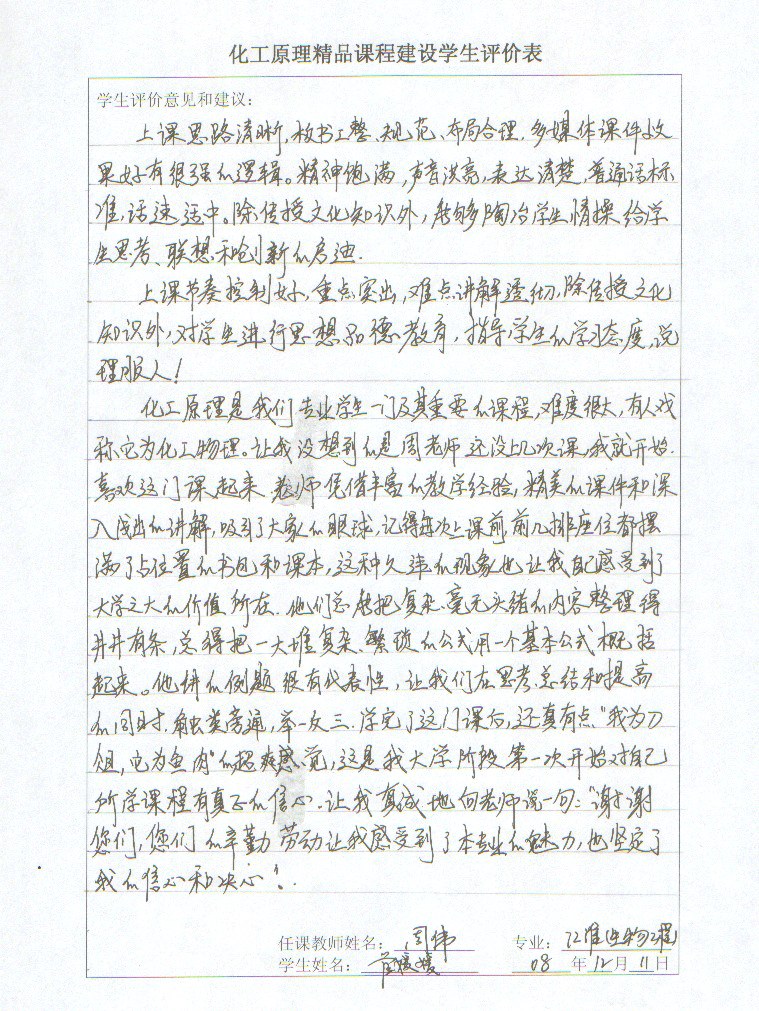 化工原理精品课程建设学生评价表
学生评价意见和建议：
上课思路清晰，板书工整、规范、布局合理，多媒体课件效
果好有很强的逻辑。精神饱满，声音洪亮，表达清楚，普通话标
准，话速适中。除传授文化知识外，能够陶冶学生情操给学
生思考、联想和创新的启迪.
上课节奏控制好，重点突出，难点讲解透彻，除传授文化
知识外，对学生进行思想品德教育，指导学生的学习态度，说
理服人！
化工原理是我们专业学生一门及其重要的课程，难度很大，有人戏
称它为化工物理。让我没想到的是周老师还没上几次课，我就开始
喜欢这门课起来 老师凭借丰富的教学经验，精美的课件和深
入浅出的讲解，吸引了大家的眼球，记得每次上课前，前几排座位都摆
满了占位置的书包和课本，这种久违的现象也让我自己感受到了
大学之大的价值所在. 他们总能把复杂、毫无头绪的内容整理得
井井有条，总得把一大堆复杂、繁琐的公式用一个基本公式概括
起来。他讲的例题很有代表性，让我们在思考总结和提高
的同时，触类旁通，举一反三.学完了这门课后，还真有点“我为刀
俎，它为鱼肉”的超爽感觉，这是我大学阶段第一次开始对自己
所学课程有真正的信心.让我真诚地向老师说一句：“谢谢
您们，您们的辛勤劳动让我感受到了本专业的魅力，也坚定了
我的信心和决心”！
任课教师姓名：周伟 专业：江淮生物工程
学生姓名：媛媛 08年12月11日